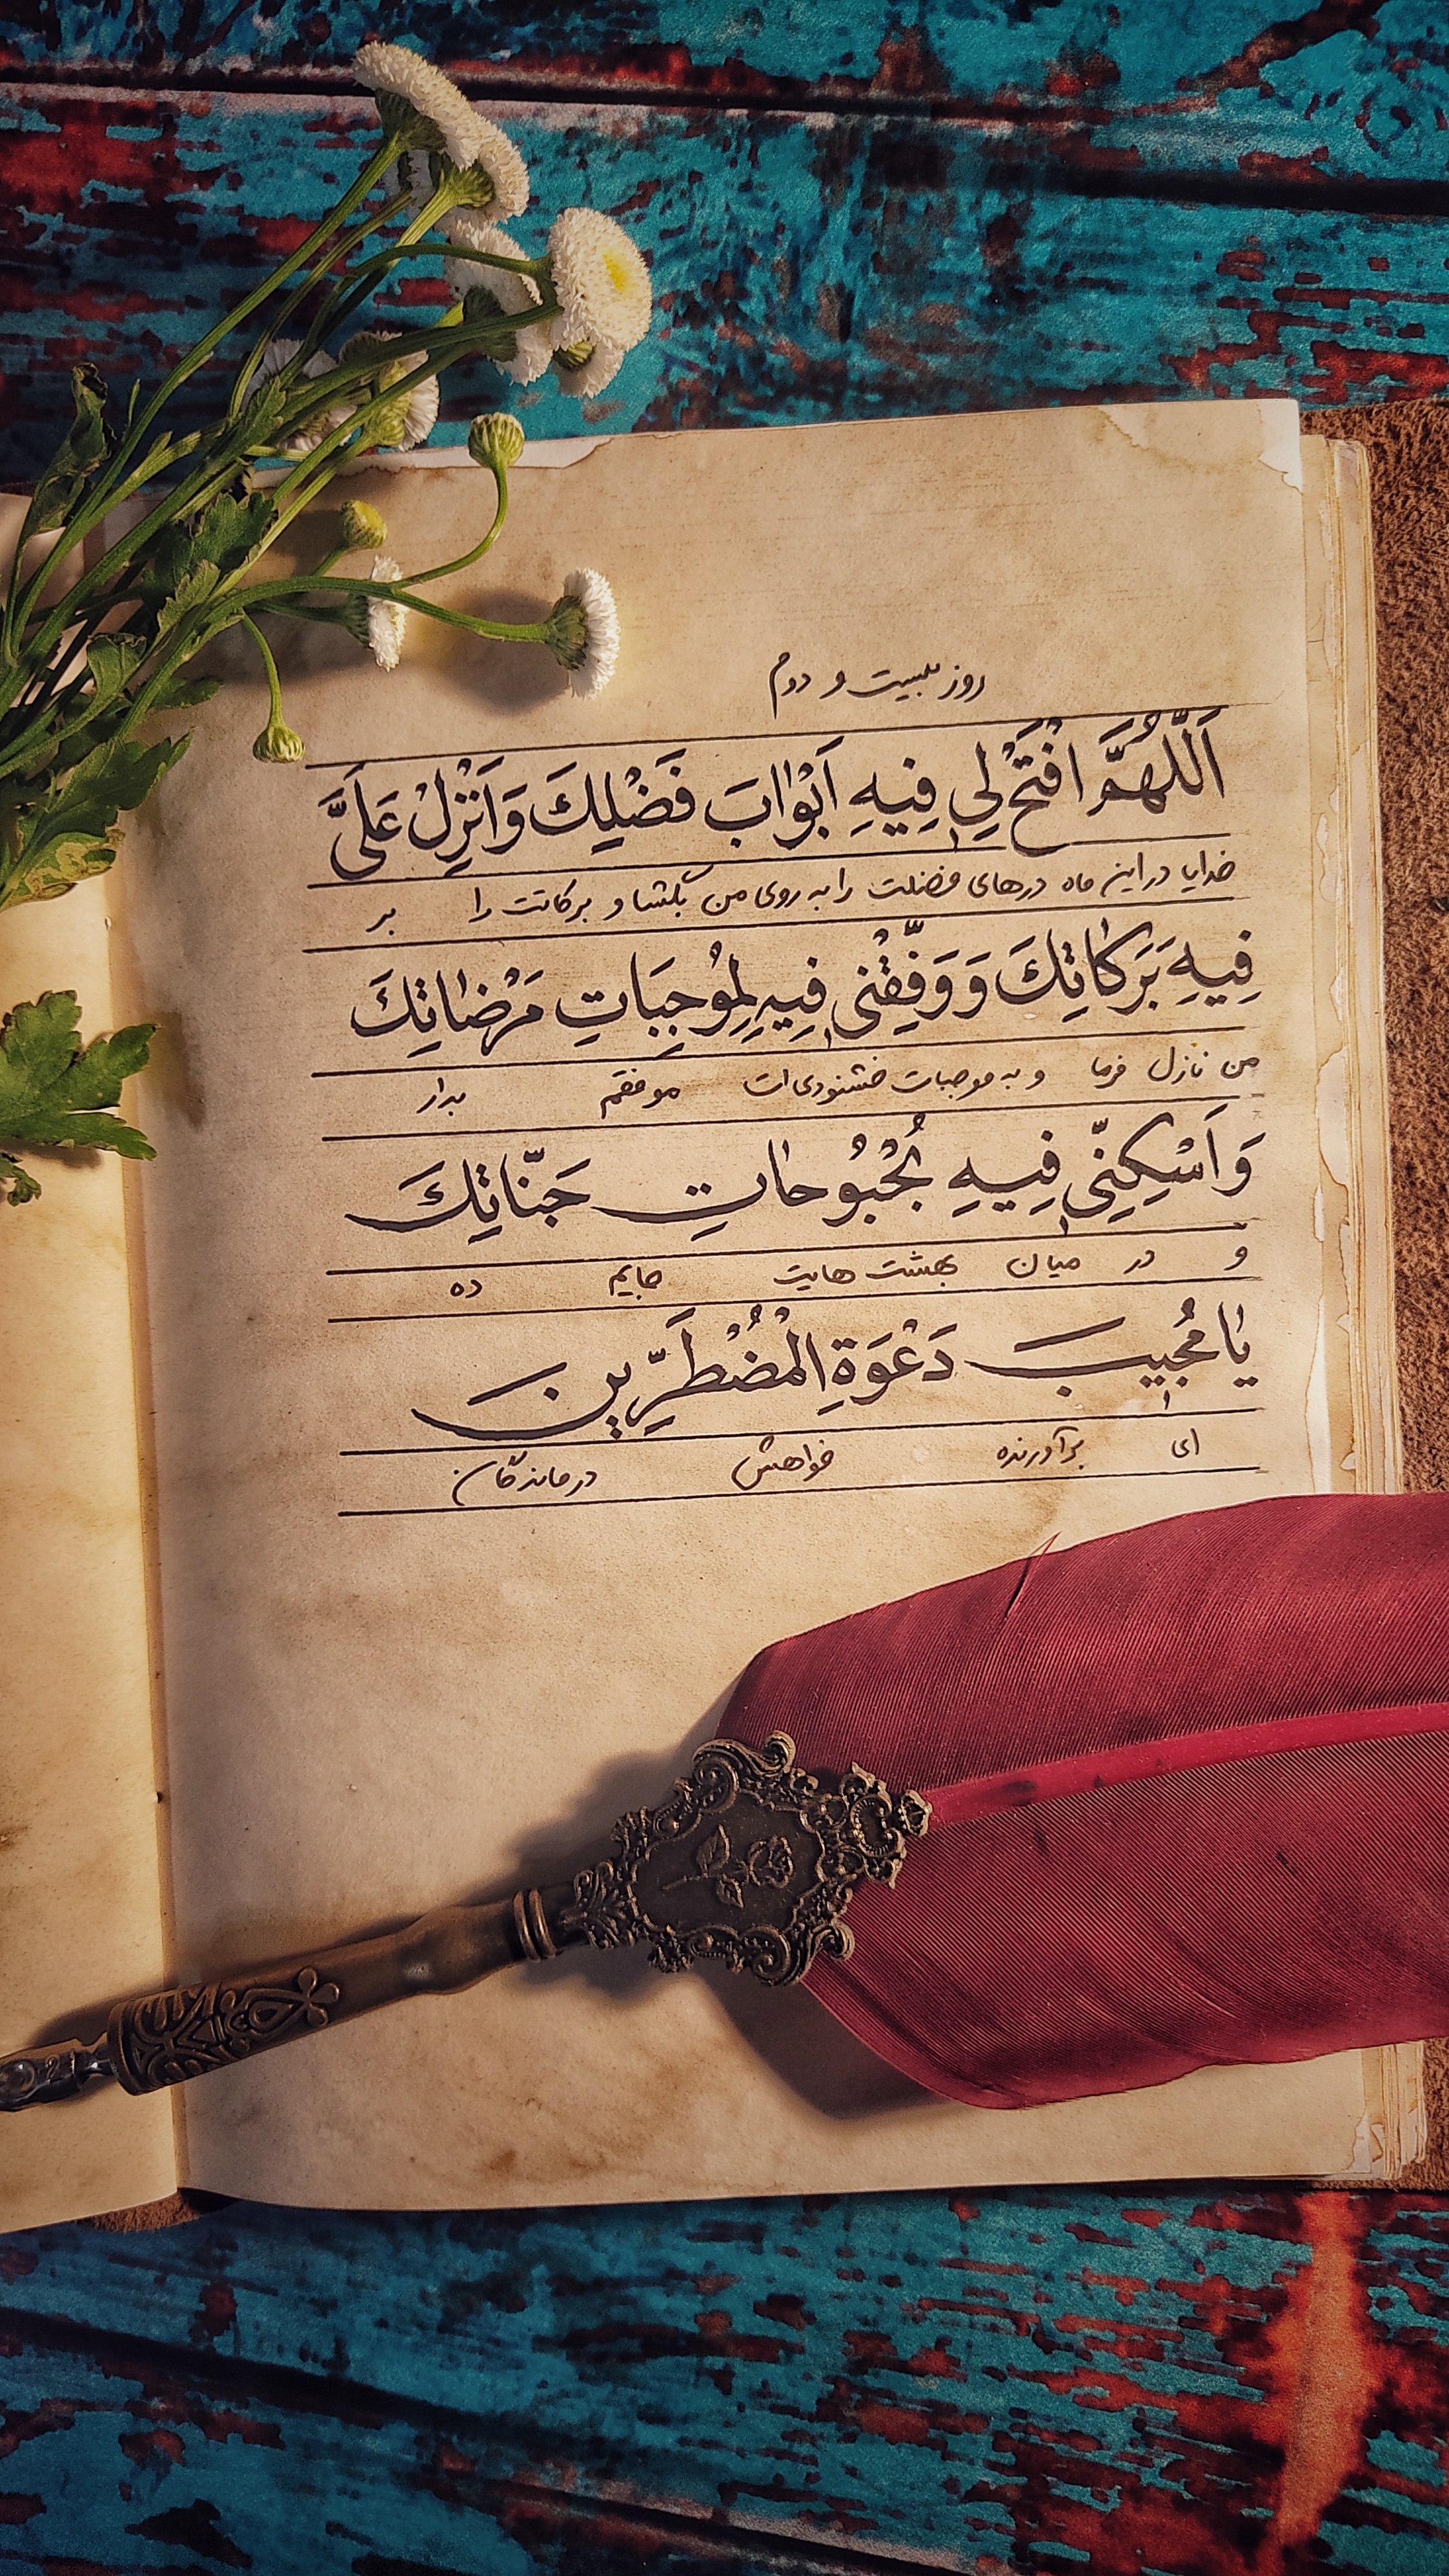 روز بیست و دوم
اَللّٰهُمَّ افْتَحْ لِي فِيهِ اَبْوٰابَ فَضْلِكَ وَاَنْزِلْ عَلَيَّ
خدایا در این ماه درهای فضلت را به روی من بگشا و برکاتت را بر
فِيهِ بَرَكٰاتِكَ وَوَفِّقْنى فِيهِ لِمُوجِبَاتِ مَرْضٰاتِكَ
من نازل فرما و به موجبات خشنودی ات موفقم بدار
وَاَسْكِنِّى فِيهِ بُحْبُوحٰاتِ جَنّٰاتِكَ
و در میان بهشت هایت جایم ده
يٰا مُجِيبَ دَعْوَةِ الْمُضْطَرِّينَ
ای برآورنده خواهش درماندگان